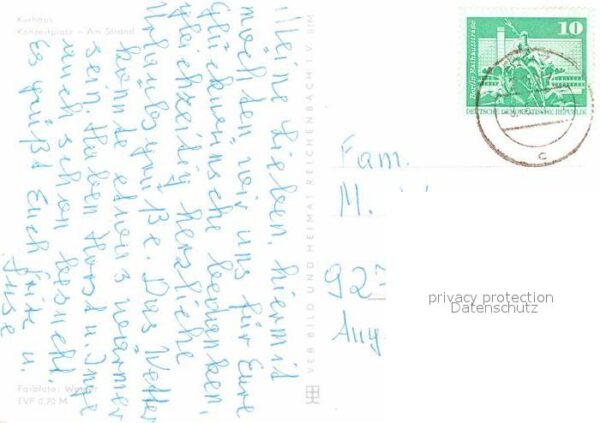 Kurhaus
Konzertplatz - Am Strand
Meine Lieben, hiermid
möchten wir uns für Eure
Glückwünsche bedanken,
gleichzeitig herzliche
Urlaubsgrüße. Das Wetter
könnde etwas wärmer
sein. Haben Horst u. Inge
auch schon besucht.
Es grüßt Euch Fritz u.
Farbfoto:
EVP 0,20 M
VEB BILD UND HEIMAT REICHENBACH I. V. BM
10
Berlin, Rathausstraße
DEUTSCHE DEMOKRATISCHE REPUBLIK
c
Fam.
M.
92
Aug
privacy protection
Datenschutz